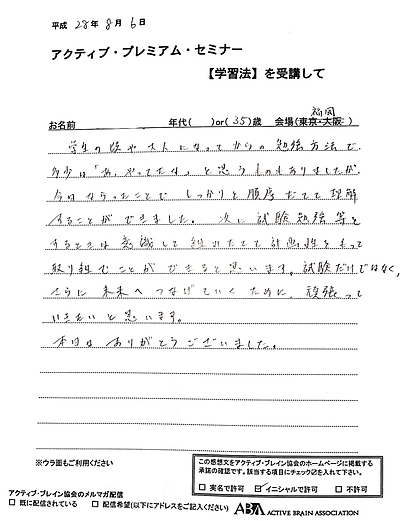 平成 28年 8月 6日
アクティブ・プレミアム・セミナー
【学習法】を受講して
お名前 年代( )or(35)歳 会場(東京・大阪・福岡)
学生の頃や大人になってからの勉強方法で、
多少は「あ、やってたな」と思うものもありましたが、
今日ならったことで しっかりと順序だてて理解
することができました。次に試験勉強等を
するときは意識して組みたてて計画性をもって
取り組むことができると思います。試験だけではなく、
さらに未来へつなげていくために、頑張って
いきたいと思います。
本日は ありがとうございました。
※ウラ面もご利用ください
この感想文をアクティブ・ブレイン協会のホームページに掲載する
承諾の確認です。該当する項目にチェック☑を入れて下さい。
□ 実名で許可 ☑ イニシャルで許可 □ 不許可
アクティブ・ブレイン協会のメルマガ配信
□ 既に配信されている □ 配信希望(以下にアドレスをご記入ください)
ABA ACTIVE BRAIN ASSOCIATION